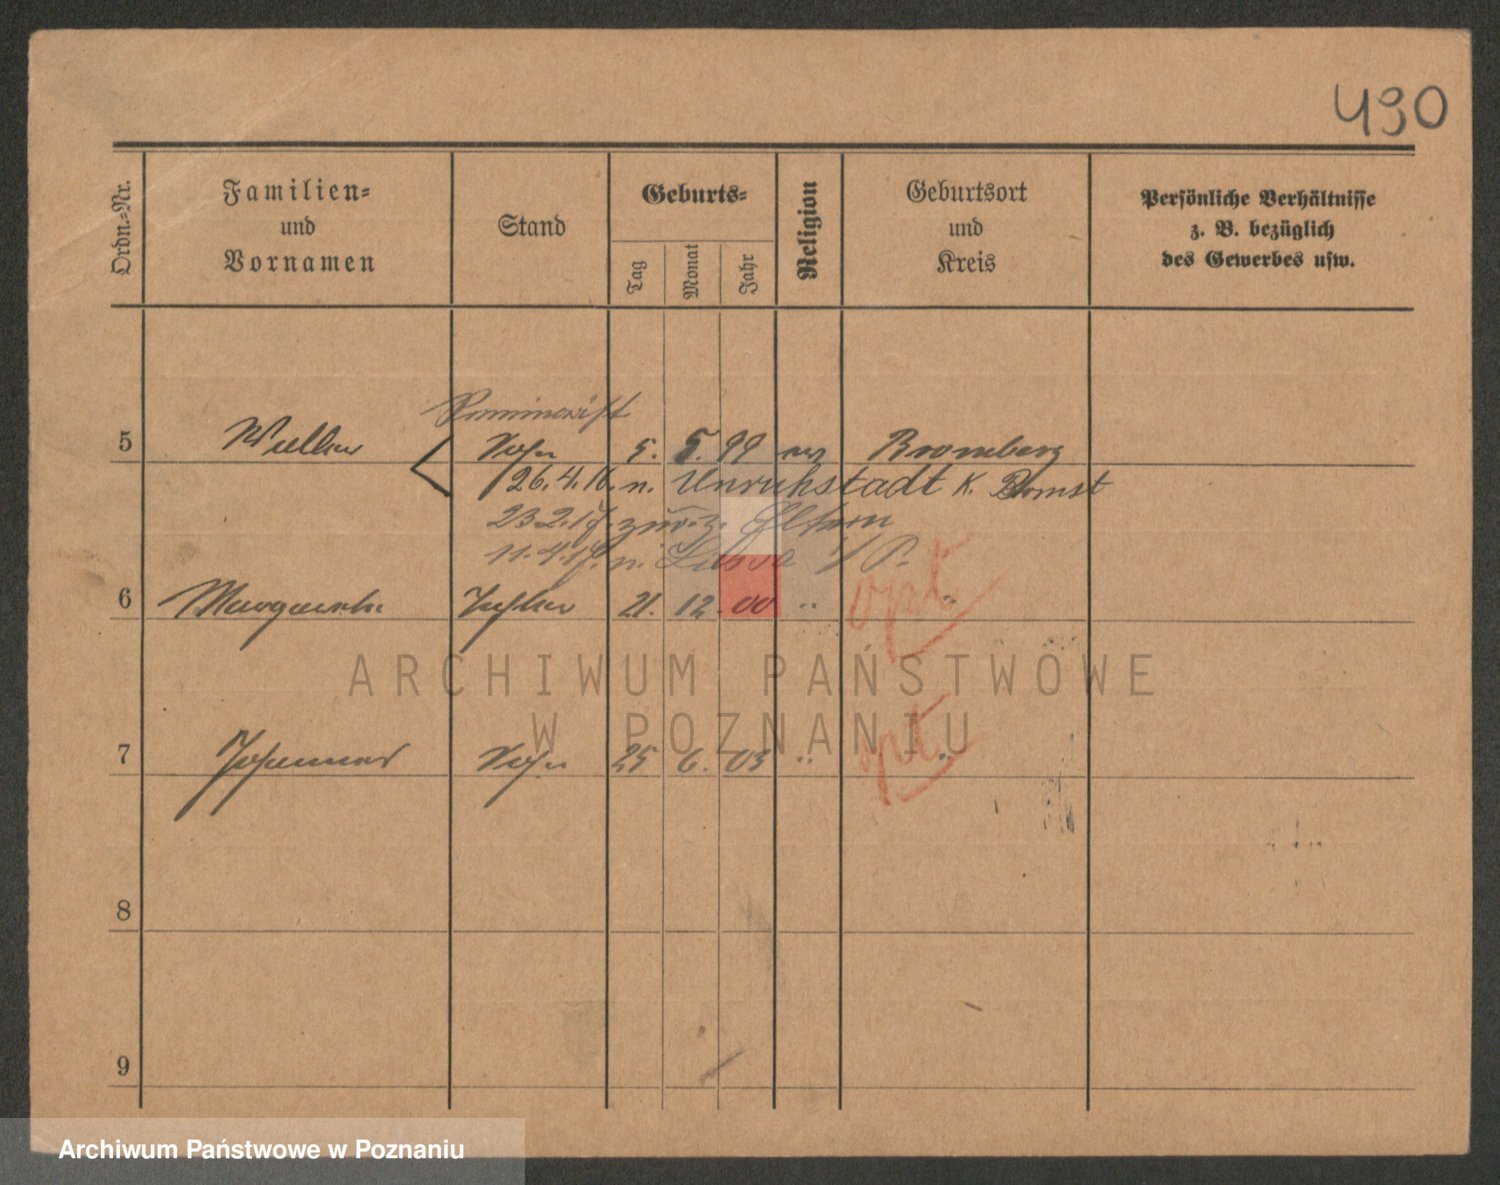 490
Ordn.-Nr.
Familien-
und
Vornamen
Stand
Geburts-
Tag
Monat
Jahr
Religion
Geburtsort
und
Kreis
Persönliche Verhältnisse
z. B. bezüglich
des Gewerbes usw.
5 Walther Sohn 5. 5. 99 ev Bromberg
26.4.16. n. Unruhstadt K. Bomst
23.2.17. zur. z. Eltern
11.4.17. n. Lissa i/P.
6 Margarete Tochter 21. 12. 00 " "
opt
7 Johannes Sohn 25 6. 03 " "
opt
8
9
ARCHIWUM PAŃSTWOWE
W POZNANIU
Archiwum Państwowe w Poznaniu